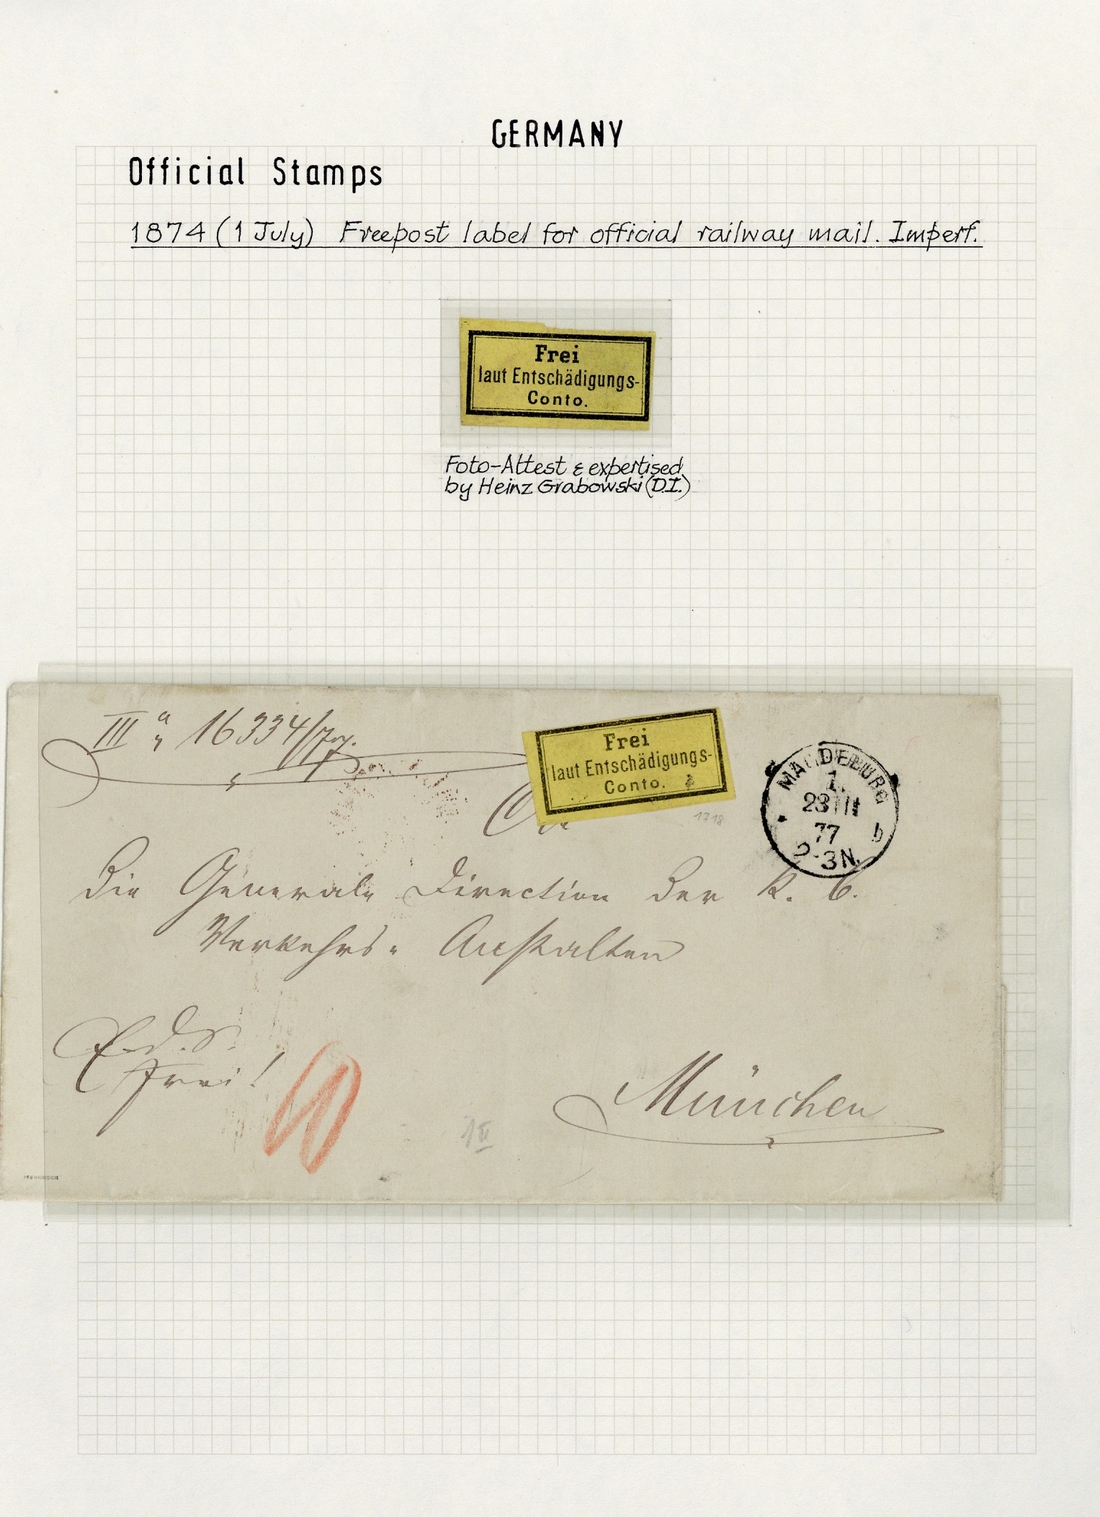 GERMANY
Official Stamps
1874 (1 July) Freepost label for official railway mail. Imperf.
Frei
laut Entschädigungs-
Conto.
Foto-Attest & expertised
by Heinz Grabowski (D.I.)
III a 16334/77.
Frei
laut Entschädigungs-
Conto.
1318
MAGDEBURG
1.
23 III
77 b
2-3 N.
An
die General-Direction der K. b.
Verkehrs-Anstalten
E. d. S.
frei!
München